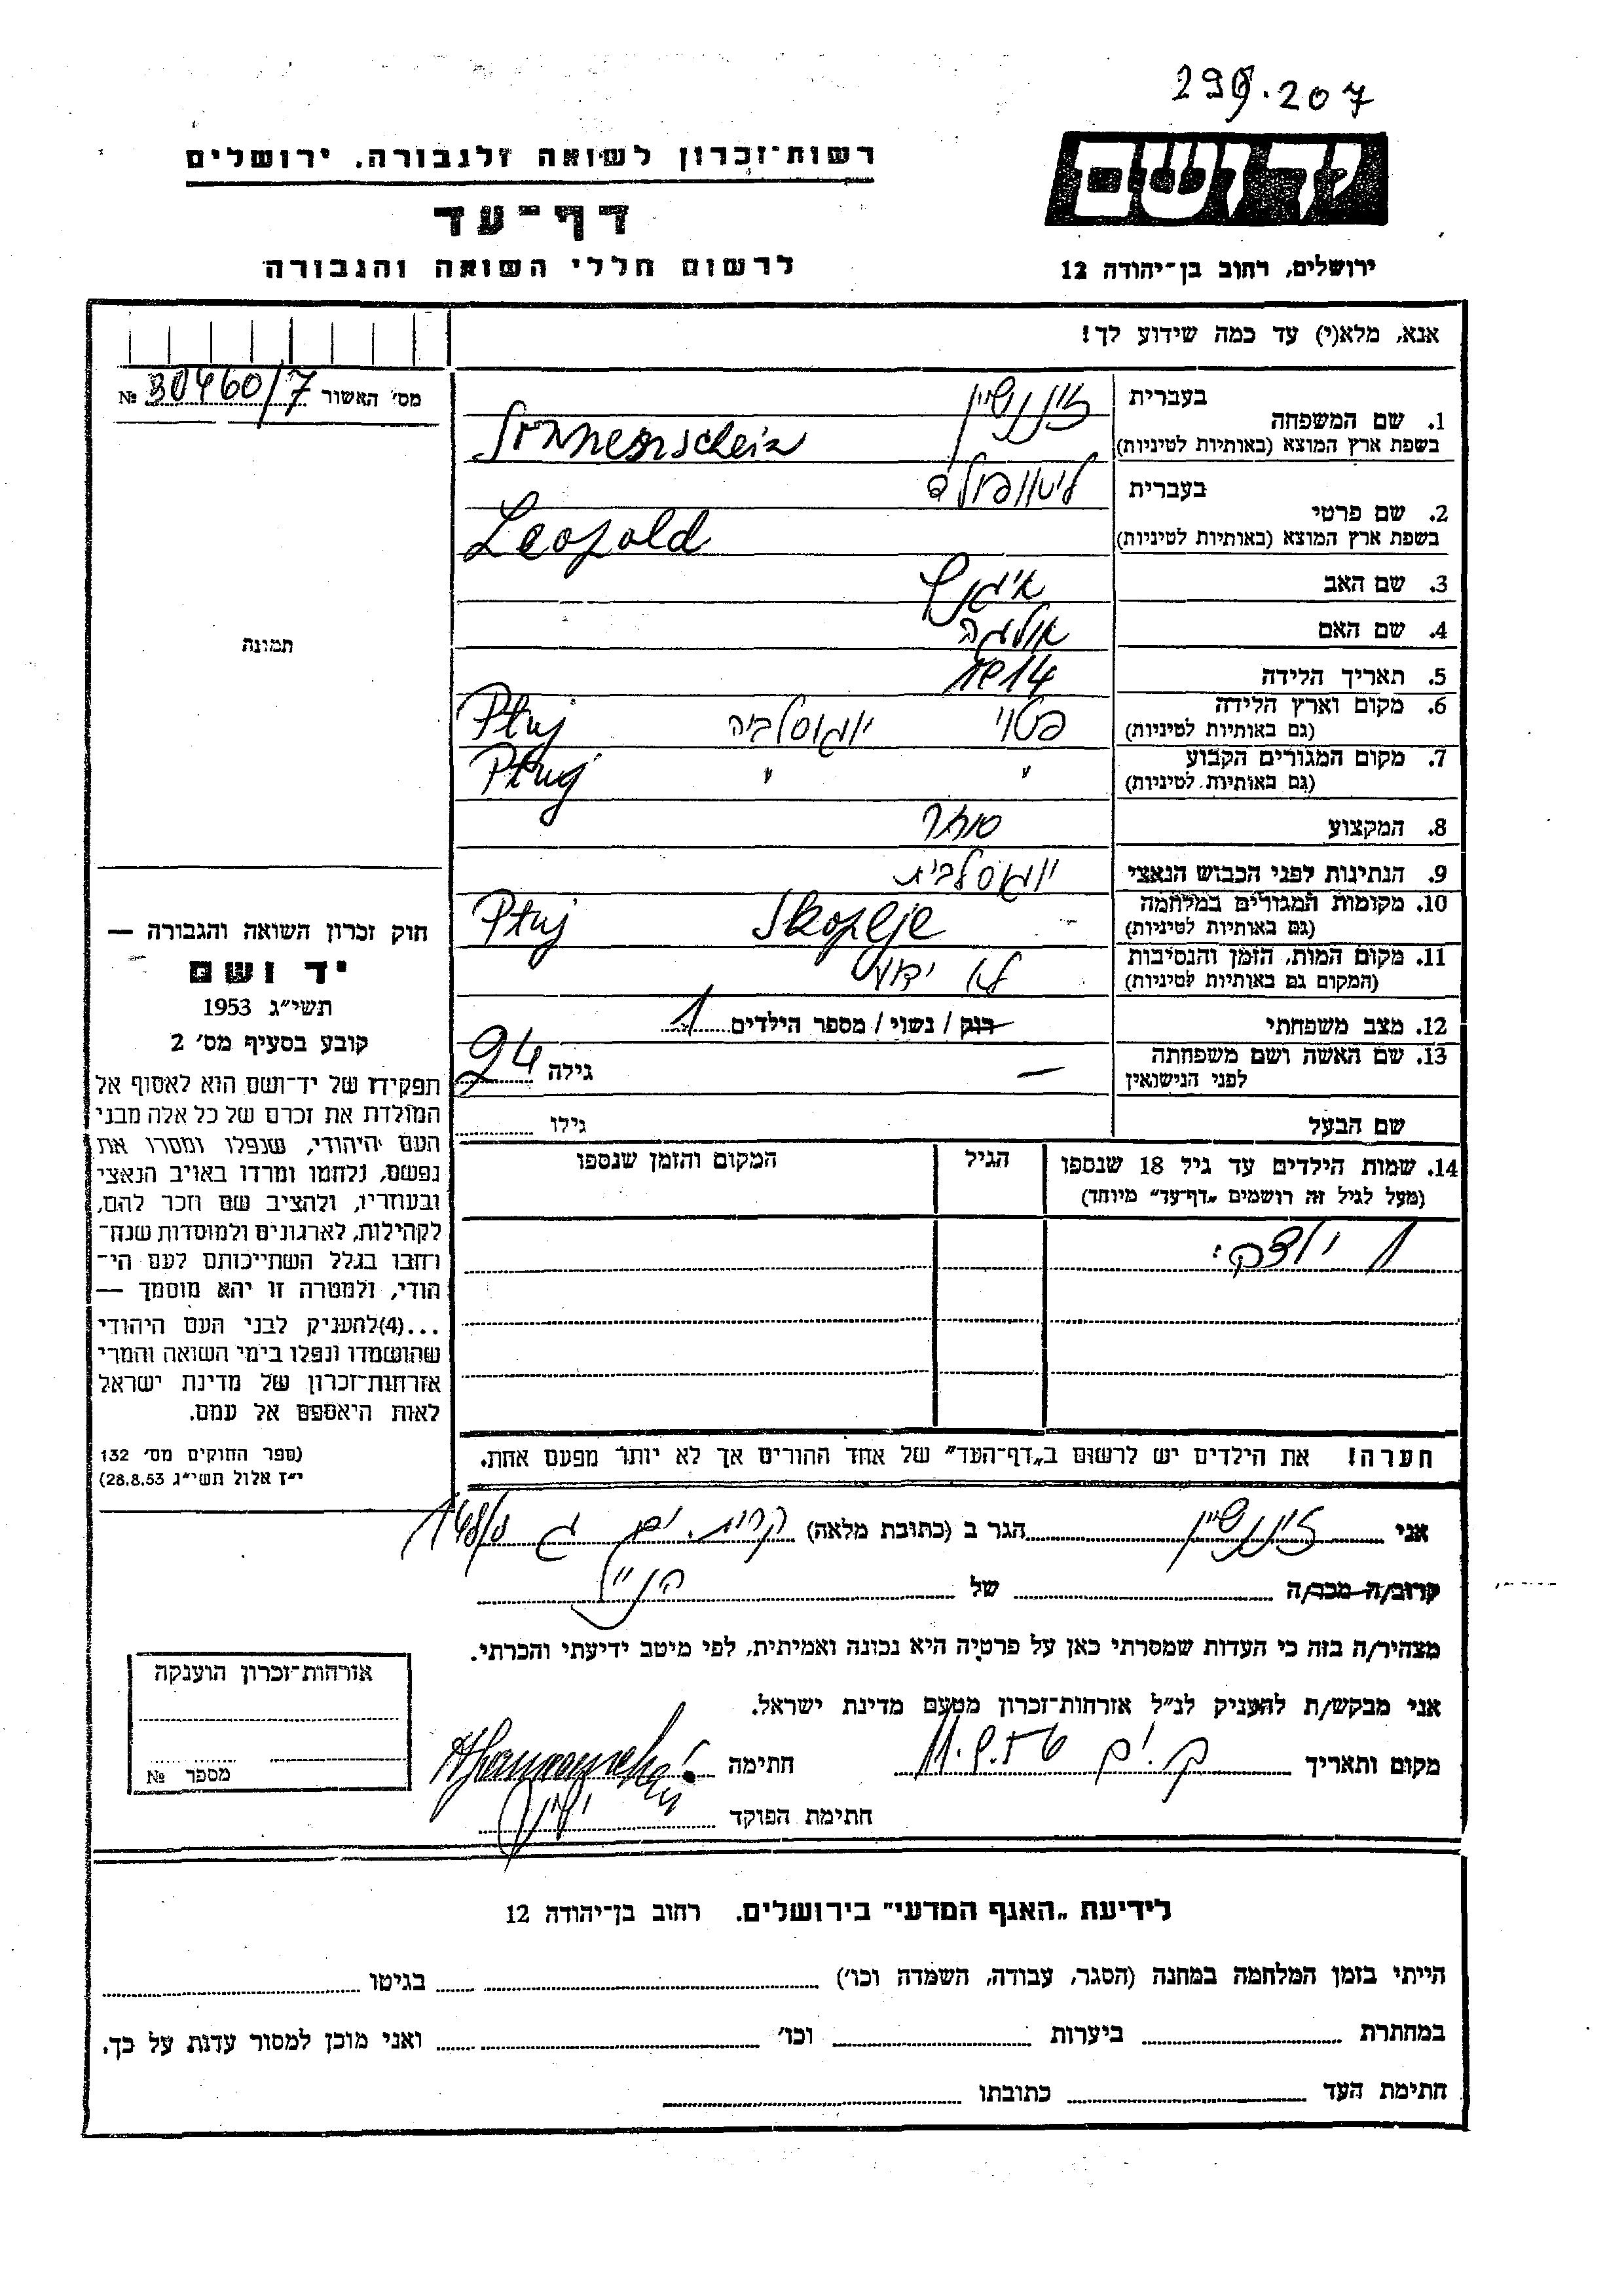 299.207
רשות־זכרון לשואה ולגבורה, ירושלים
יד ושם
דף־עד
לרשום חללי השואה והגבורה
ירושלים, רחוב בן־יהודה 12
אנא, מלא(י) עד כמה שידוע לך!
מס' האשור 30460/7 №
1. שם המשפחה
בעברית זוננשיין
בשפת ארץ המוצא (באותיות לטיניות) Sonnenschein
2. שם פרטי
בעברית ליאופולד
בשפת ארץ המוצא (באותיות לטיניות) Leopold
3. שם האב
4. שם האם אולגה
תמונה
5. תאריך הלידה 1914
6. מקום וארץ הלידה פטוי יוגוסלביה Ptuj
(גם באותיות לטיניות)
7. מקום המגורים הקבוע " " Ptuj
(גם באותיות לטיניות)
8. המקצוע סוחר
9. הנתינות לפני הכבוש הנאצי יוגוסלבית
10. מקומות המגורים במלחמה Skoplje Ptuj
(גם באותיות לטיניות)
11. מקום המות, הזמן והנסיבות לא ידוע
(המקום גם באותיות לטיניות)
12. מצב משפחתי רווק / נשוי / מספר הילדים 1
13. שם האשה ושם משפחתה — גילה 24
לפני הנישואין
שם הבעל גילו
14. שמות הילדים עד גיל 18 שנספו הגיל המקום והזמן שנספו
(מעל לגיל זה רושמים „דף־עד" מיוחד)
חוק זכרון השואה והגבורה —
יד ושם
תשי"ג 1953
קובע בסעיף מס' 2
תפקידו של יד־ושם הוא לאסוף אל
המולדת את זכרם של כל אלה מבני
העם היהודי, שנפלו ומסרו את
נפשם, נלחמו ומרדו באויב הנאצי
ובעוזריו, ולהציב שם וזכר להם,
לקהילות, לארגונים ולמוסדות שנח־
רחבו בגלל השתייכותם לעם הי־
הודי, ולמטרה זו יהא מוסמך —
...(4)להעניק לבני העם היהודי
שהושמדו ונפלו בימי השואה והמרי
אזרחות־זכרון של מדינת ישראל
לאות היאספם אל עמם.
(ספר החוקים מס' 132
י"ז אלול תשי"ג 28.8.53)
הערה! את הילדים יש לרשום ב„דף־העד" של אחד ההורים אך לא יותר מפעם אחת.
אני זוננשיין הגר ב (כתובת מלאה) קרית. ים ג
קרוב/ה מכר/ה של הנ"ל
מצהיר/ה בזה כי העדות שמסרתי כאן על פרטיה היא נכונה ואמיתית, לפי מיטב ידיעתי והכרתי.
אני מבקש/ת להעניק לנ"ל אזרחות־זכרון מטעם מדינת ישראל.
מקום ותאריך ק. ים 11.9.56 חתימה
חתימת הפוקד
אזרחות־זכרון הוענקה
מספר №
לידיעת „האגף המדעי" בירושלים. רחוב בן־יהודה 12
הייתי בזמן המלחמה במחנה (הסגר, עבודה, השמדה וכו') בגיטו
במחתרת ביערות וכו' ואני מוכן למסור עדות על כך.
חתימת העד כתובתו